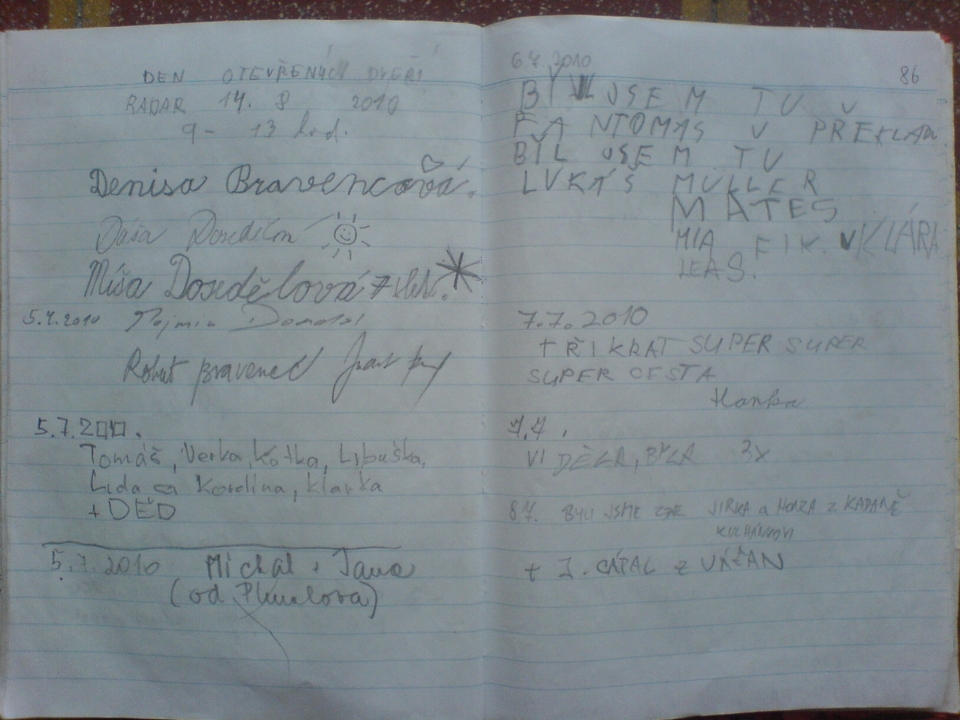 DEN OTEVŘENÝCH DVEŘÍ
RADAR 14. 8 2010
9 - 13 hod.
Denisa Bravencová.
Dáša
Míša Dosedělová 7 let.
5.7.2010
Robert Bravenec
5.7.2010.
Tomáš, Verka, Katka, Libuška,
Lída a Karolína, klárka
+ DĚD
5.7.2010 Michal + Jana
(od Plumlova)
6.7.2010
86
BYL JSEM TU V
FANTOMAS V PŘEKLADU
BYL JSEM TU
LUKÁŠ MÜLLER
MATES
MIA FIK. KLÁRA
LEAS.
7.7.2010
+ŘIKRAT SUPER SUPER
SUPER CESTA
Hanka
7.7.
VIDĚLA, BYLA 3x
8.7. BYLI JSME ZDE JIRKA a HONZA z KADANĚ
+ J. CÁPAL z VÁŽAN